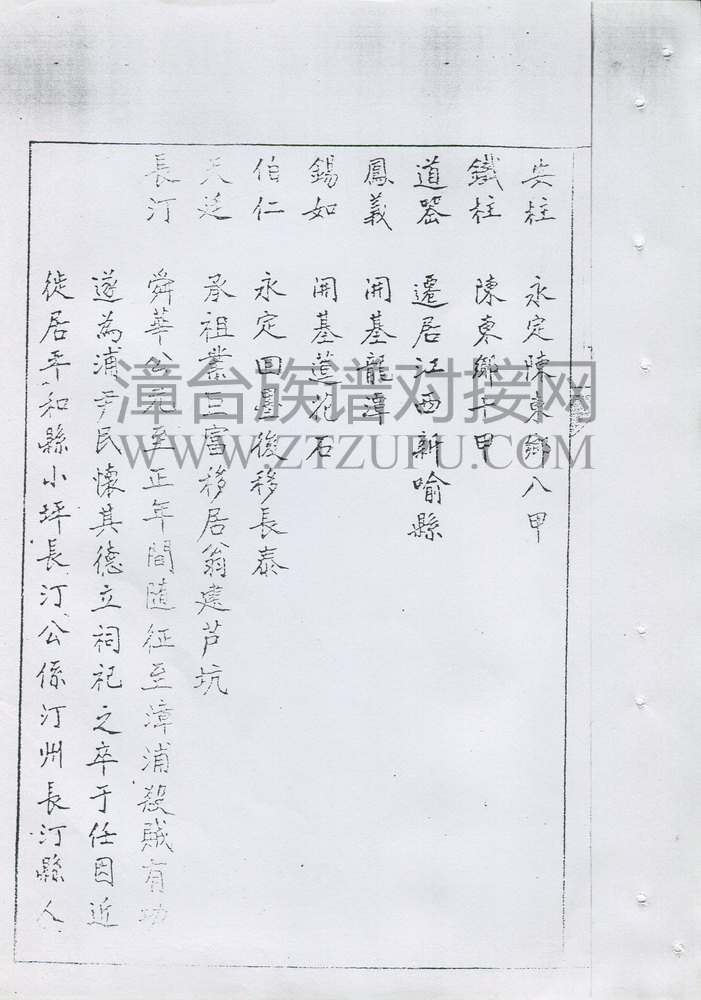 安柱 永定陳東鄉八甲
鐵柱 陳東鄉十甲
道器 遷居江西新喻縣
鳳義 開基龍潭
錫如 開基蓮花石
伯仁 永定回墨後移長泰
天廷 承祖業巨富移居翁建芦坑
長汀 舜華公元至正年間隨征至漳浦殺賊有功
遂為浦尹民懷其德立祠祀之卒于任因近
徙居平和縣小坪長汀公係汀州長汀縣人
漳台族谱对接网
WWW.ZTZUPU.COM